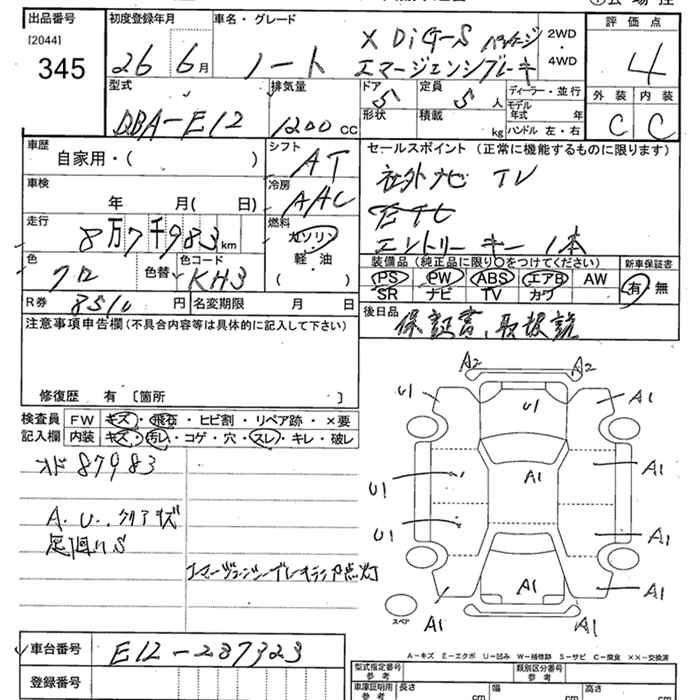 出品番号 初度登録年月 車名・グレード 評価点
[2044]
345
26 6月 ノート X DiG-S パッケージ
エマージェンシブレーキ
2WD・4WD
4
型式 排気量 ドア 定員 ディーラー・並行 外装 内装
DBA-E12 1200 CC 5 5人
形状 積載 kg
モデル年式 年
ハンドル 左・右
C C
車歴 シフト セールスポイント (正常に機能するものに限ります)
自家用・( ) AT 社外ナビ TV
車検 冷房 ETC
年 月( 日) AAC エントリーキー 1本
走行 燃料
8万7千983km ガソリン
軽・油
( )
装備品 (純正品に限り○をつけてください) 新車保証書
色 色替 色コード PS PW ABS エアB AW 有 無
クロ KH3 SR ナビ TV カワ
R券 8510円 名変期限 月 日 後日品
保証書、取扱説
注意事項申告欄 (不具合内容等は具体的に記入して下さい)
修復歴 有 〔箇所 〕
検査員記入欄
FW キズ・飛石・ヒビ割・リペア跡・×要
内装 キズ・汚れ・コゲ・穴・スレ・キレ・破レ
オド 87983
A.U.、クリアキズ
足回りS
エマージェンシーブレーキランプ点灯
A2 A2
U1 U1 A1
A1 A1
U1
U1 A1
A1 A1 A1
A1 A1
スペア
A-キズ E-エクボ U-凹み W-補修跡 S-サビ C-腐食 ××-交換済
車台番号 E12-287323
登録番号
型式指定番号 参考
類別区分番号 参考
車庫証明用 参考 長さ cm 幅 cm 高さ cm